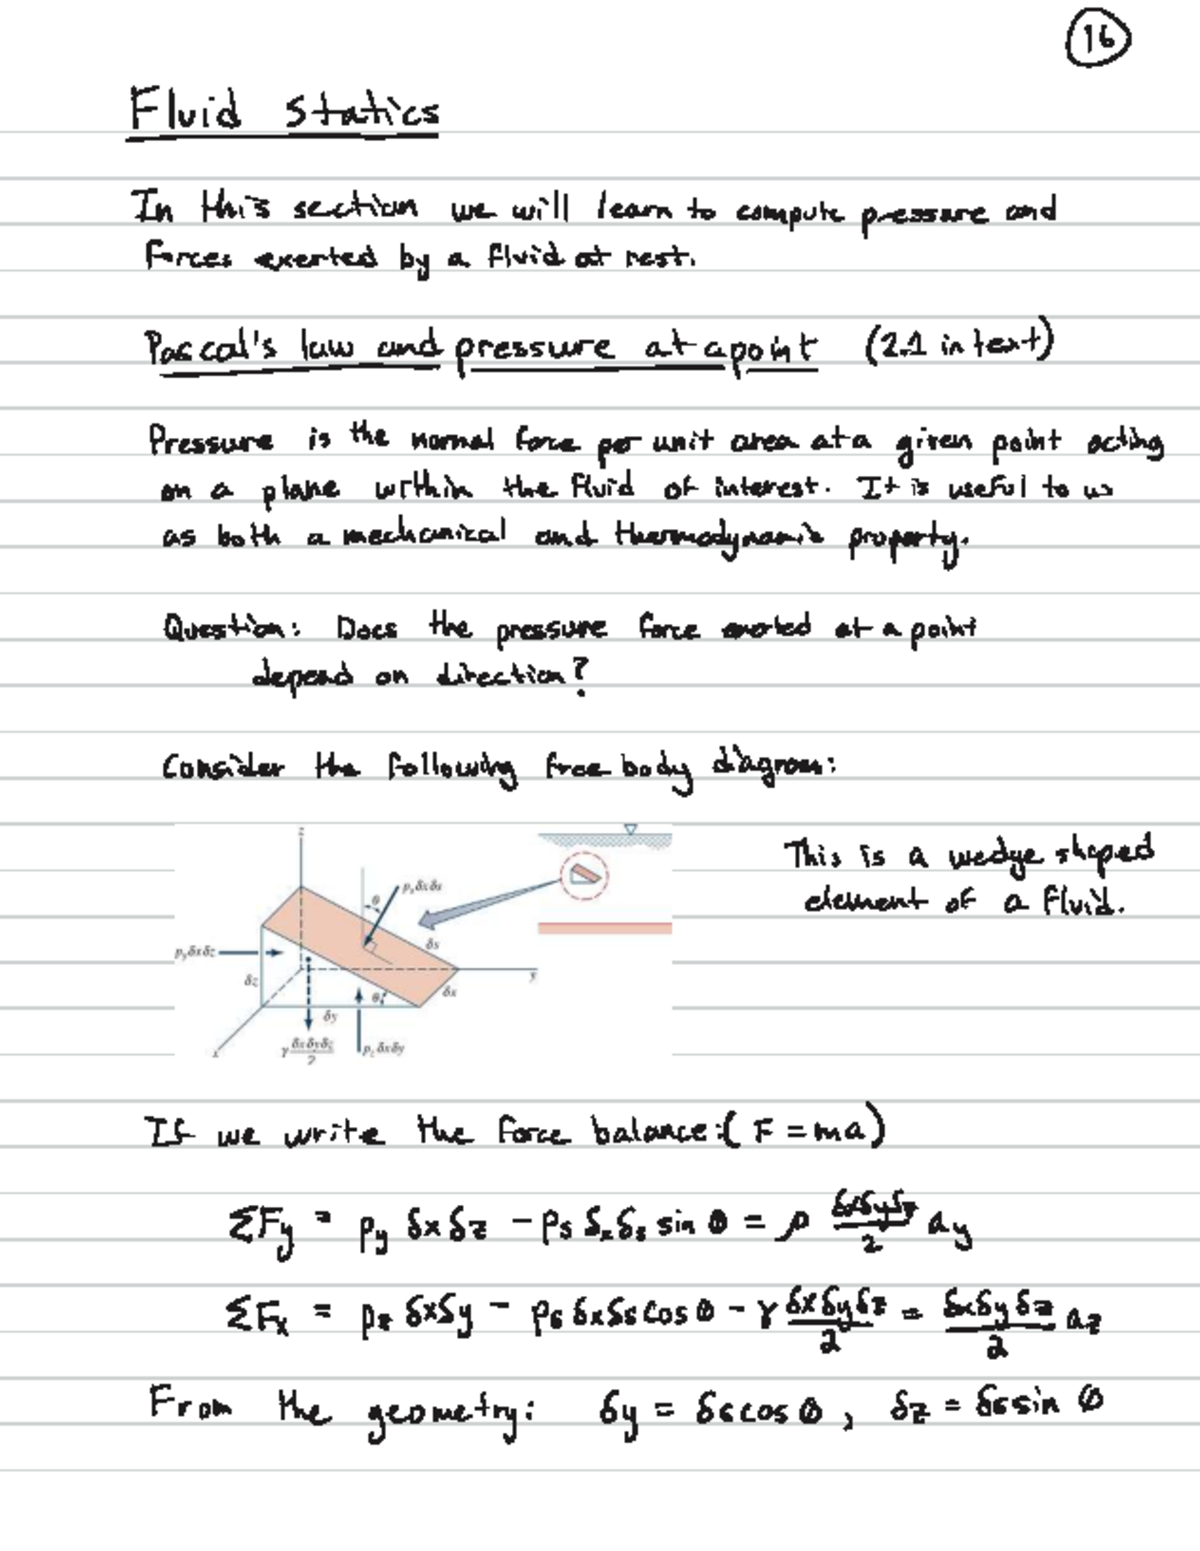 16
Fluid statics
In this section we will learn to compute pressure and
forces exerted by a fluid at rest.
Pascal's law and pressure at a point (2.1 in text)
Pressure is the normal force per unit area at a given point acting
on a plane within the fluid of interest. It is useful to us
as both a mechanical and thermodynamic property.
Question: Does the pressure force exerted at a point
depend on direction?
Consider the following free body diagram:
This is a wedge shaped
element of a fluid.
z
θ
p_s δxδs
δs
p_y δxδz
δz
y
δx
θ
δy
x
γ δxδyδz/2
p_z δxδy
If we write the force balance: (F = ma)
ΣF_y = p_y δx δz - p_s δ_x δ_s sin θ = ρ δxδyδz/2 a_y
ΣF_x = p_z δxδy - p_s δxδs cos θ - γ δxδyδz/2 = δxδyδz/2 a_z
From the geometry: δy = δs cos θ, δz = δs sin θ